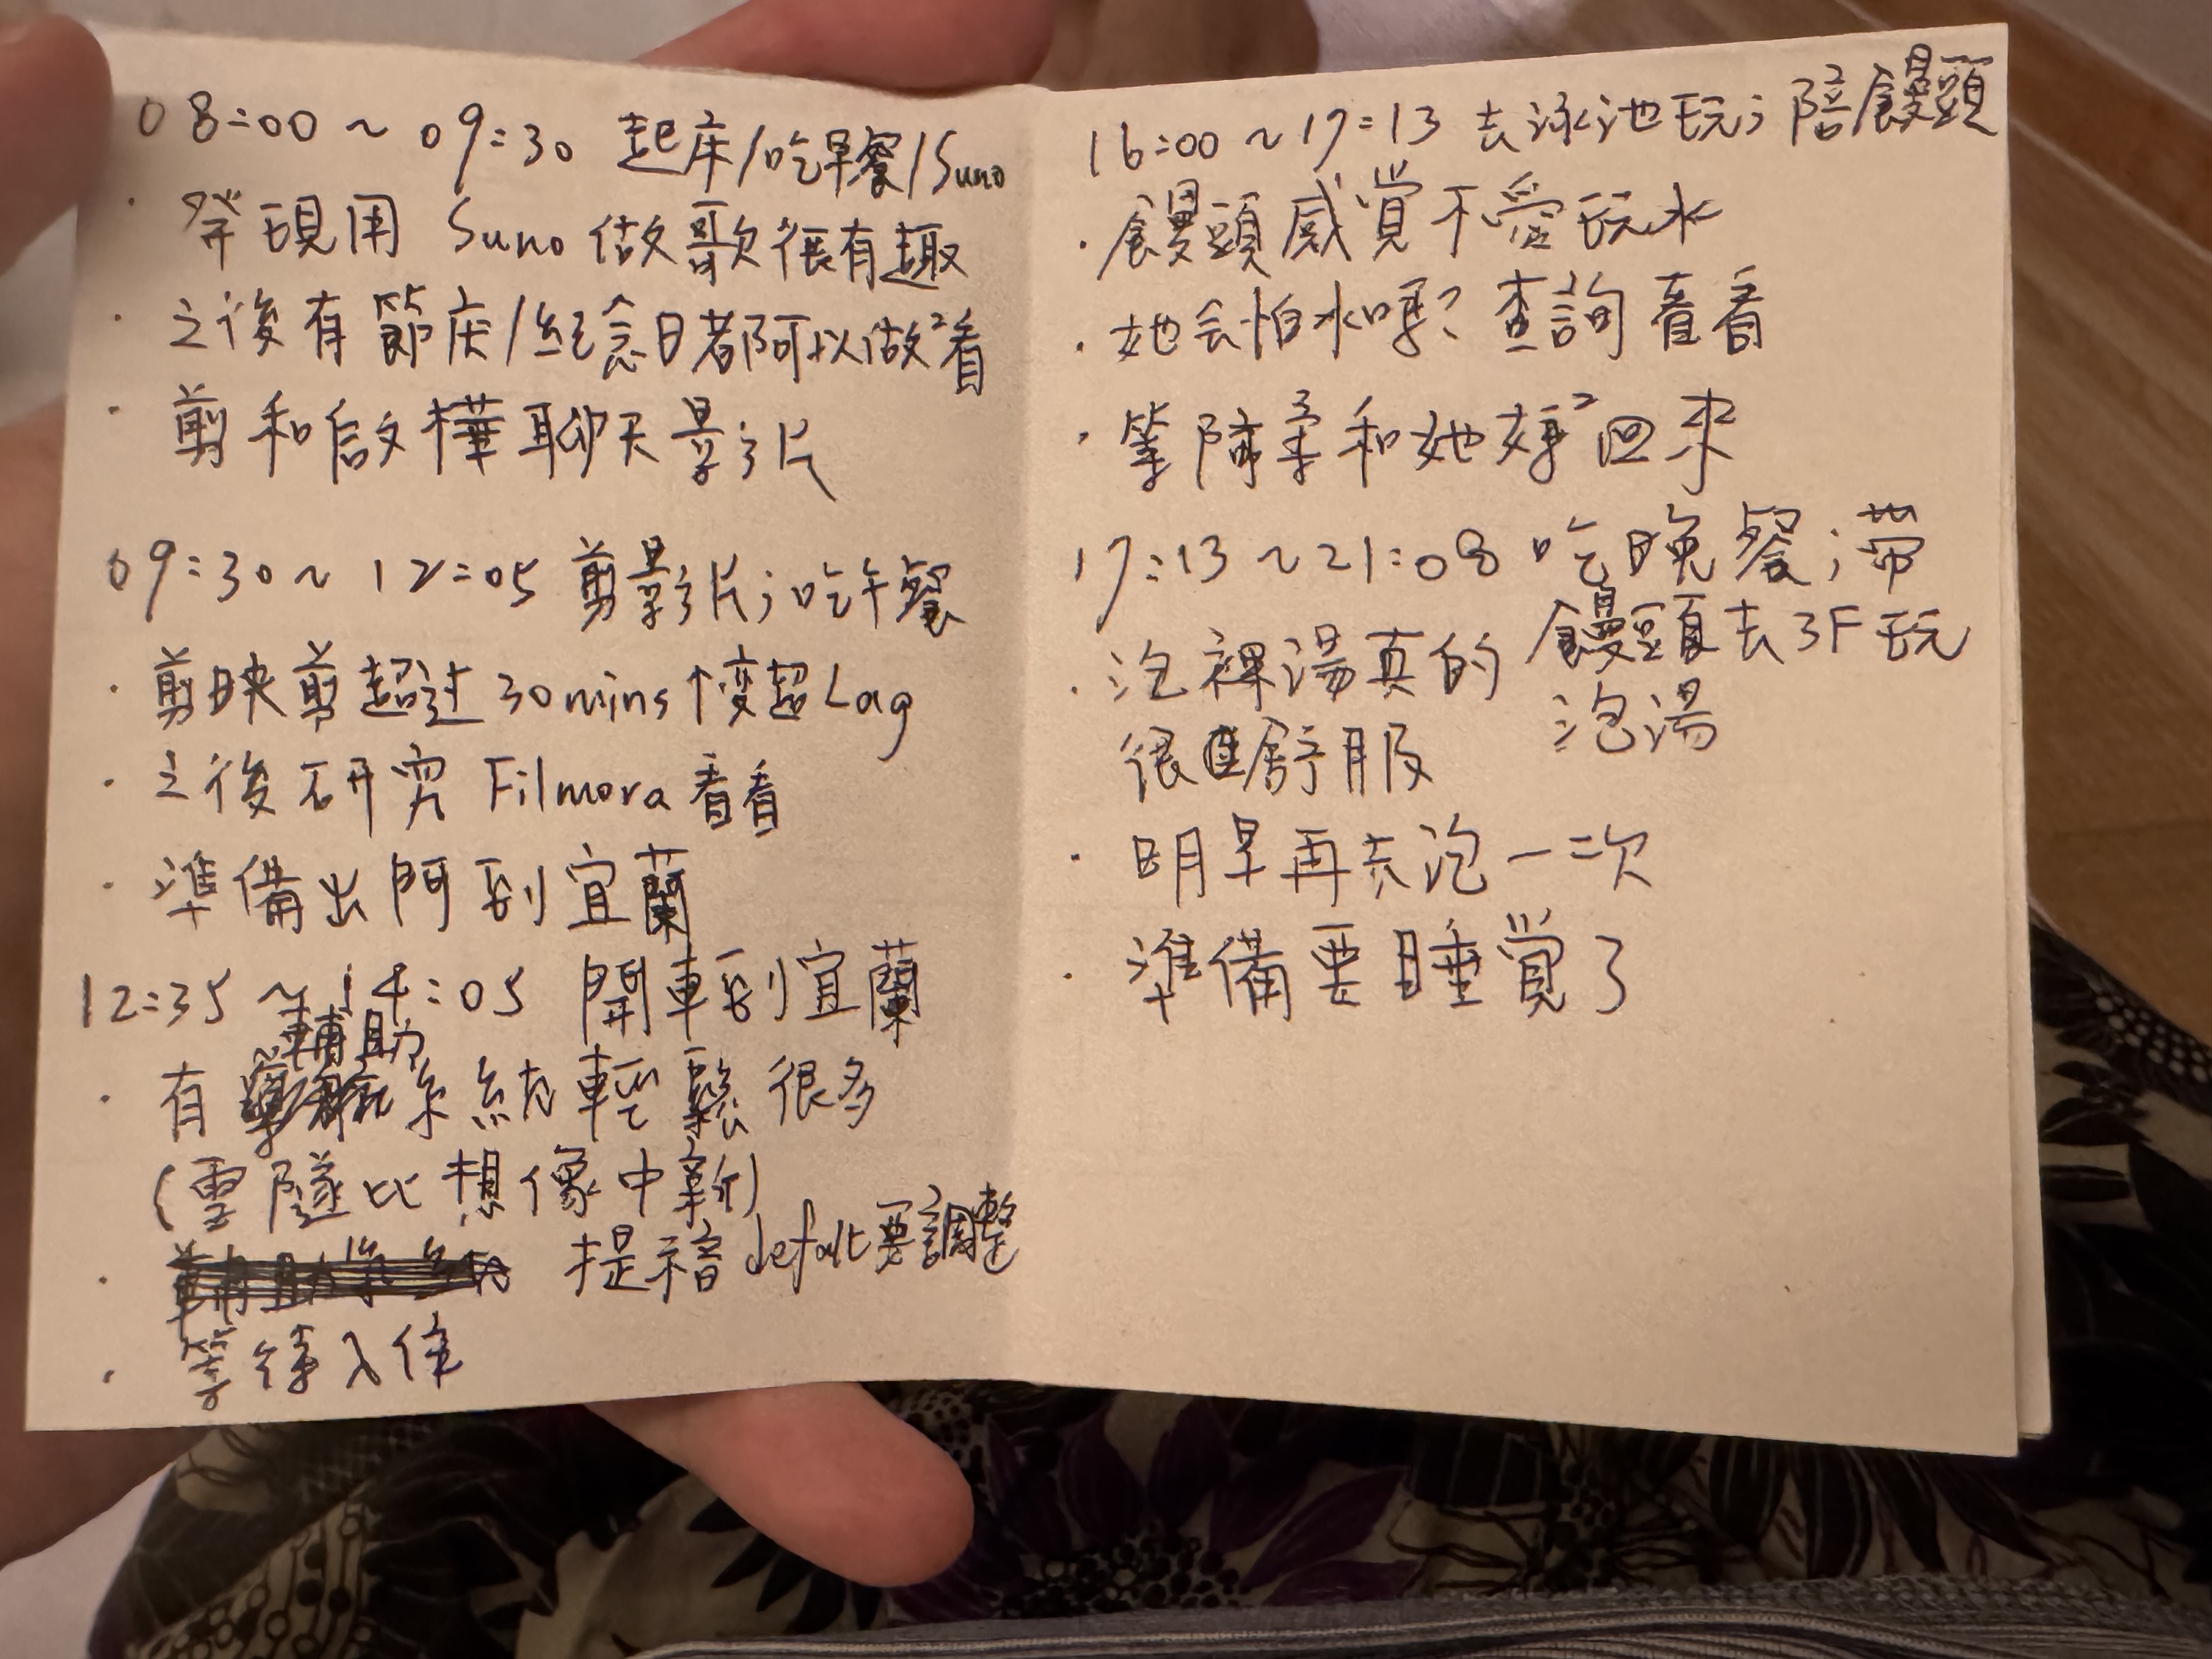 08:00 ~ 09:30 起床/吃早餐/Suno
· 發現用 Suno 做歌很有趣
· 之後有節庆/紀念日都可以做²看
· 剪和啟樺聊天影片
09:30 ~ 12:05 剪影片;吃午餐
· 剪映剪超过 30mins↑變超Lag
· 之後研究 Filmora 看看
· 準備出門到宜蘭
12:35 ~ 14:05 開車到宜蘭
· 有輔助系統輕鬆很多
(雪隧比想像中新)
· 提示音 defalt要調整
· 等待入住
16:00 ~ 17:13 去泳池玩;陪饅頭
· 饅頭感覚不愛玩水
· 她会怕水嗎? 查詢看看
· 等陳柔和她媽²回來
17:13 ~ 21:08 吃晚餐;带
饅頭去3F玩
泡湯
· 泡裸湯真的
很舒服
· 明早再去泡一次
· 準備要睡覚了